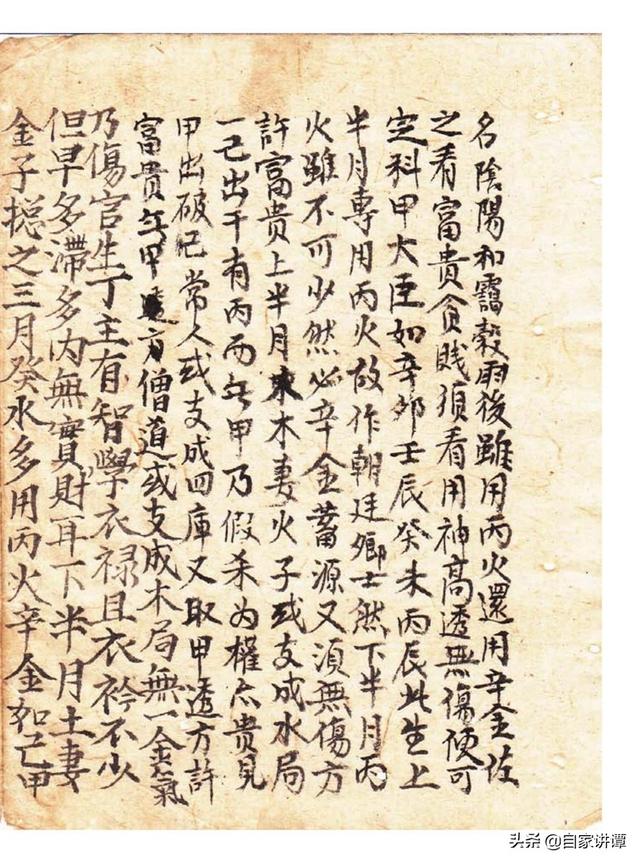 名陰陽和靄穀雨後雖用丙火還用辛金佐
之看富貴貪賎須看用神高透無傷便可
定科甲大臣如辛夘壬辰癸未丙辰此生上
半月專用丙火故作朝廷鄉士然下半月丙
火雖不可少然必辛金蓄源又須無傷方
許富貴上半月木妻火子或支成水局
一己出干有丙而无甲乃假杀为權亦貴見
甲出破己常人或支成四庫又取甲透方許
富貴无甲透方僧道或支成木局無一金氣
乃傷官生丁主有智學衣禄且衣衿不少
但早多滯多内無實財耳下半月土妻
金子揔之三月癸水多用丙火辛金和己甲
头条 @自家讲谭